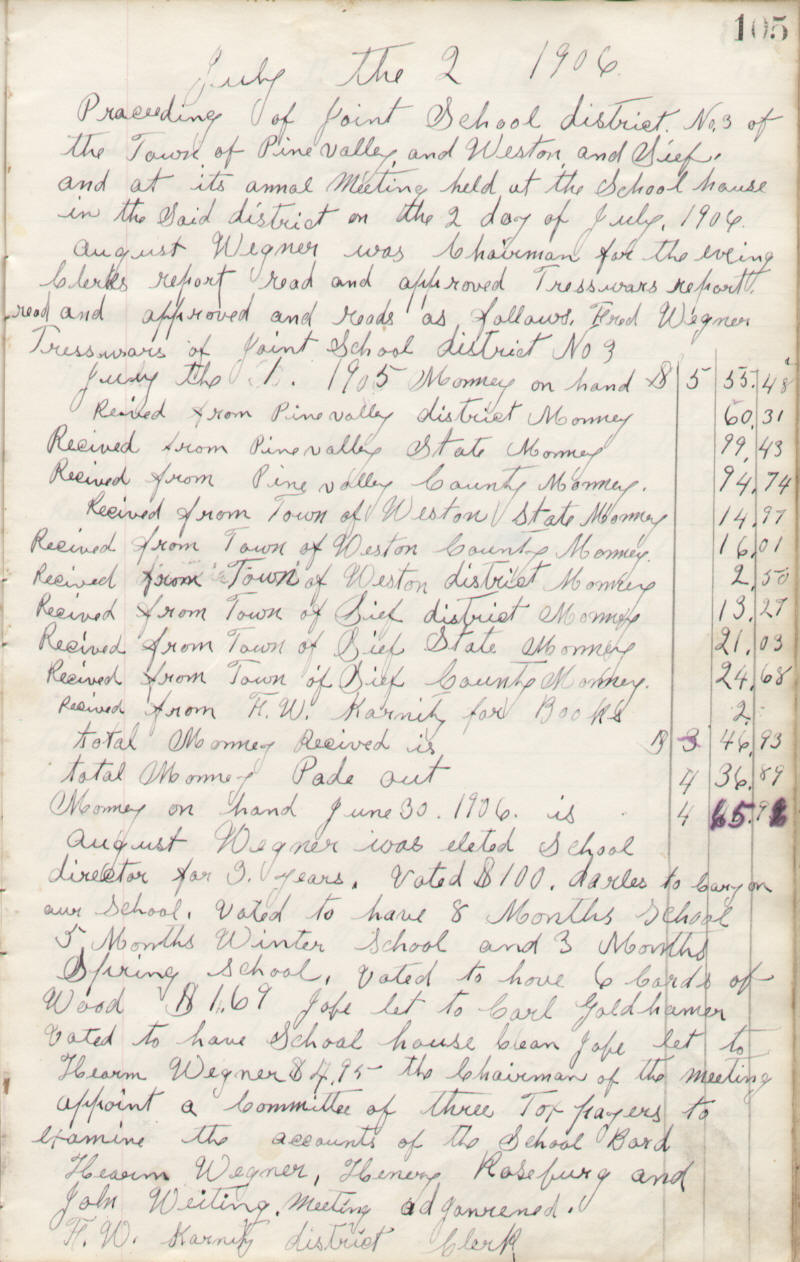 105
July the 2 1906.
Praceeding of Joint School district. No, 3 of
the Town of Pine valley, and Weston, and Sief.
and at its annal Meeting held at the School house
in the Said district on the 2 day of July, 1906.
august Wegner was Chairman for the eveing
Clerks report read and approved Tresswars report.
read and approved and reads as follows. Fred Wegner
Tresswars of Joint School district No 3
July the 1. 1905 Monney on hand $ 5 55.48
Reived from Pine valley district Monney 60,31
Recived from Pine valley State Monney 99,43
Recived from Pine valley County Monney. 94,74
Recived from Town of Weston State Monney 14,97
Recived from Town of Weston County Monney. 16,01
Recived from Town of Weston district Monney 2,50
Recived from Town of Sief district Monney 13,27
Recived from Town of Sief State Monney 21,03
Recived from Town of Sief County Monney. 24,68
Recived from F. W. Karnitz for Books 2.
total Monney Recived is $ 3 46,93
total Monney Pade out 4 36,89
Monney on hand June 30. 1906. is 4 65.92
august Wegner was eleted School
director for 3. years. Voted $100. darles to Cary on
our School. Voted to have 8 Months School
5 Months Winter School and 3 Months
Spring School. Voted to hove 6 Cards of
Wood $1,69 Jobe let to Carl Goldhamer
Voted to have School house Clean Jobe let to
Hearm Wegner $4,95 the Chairman of the meeting
appoint a Committee of three Tox payers to
examine the accounts of the School Bard
Hearm Wegner, Henery Roseburg and
John Weiting. Meeting adjonrened.
F. W. Karnitz district Clerk